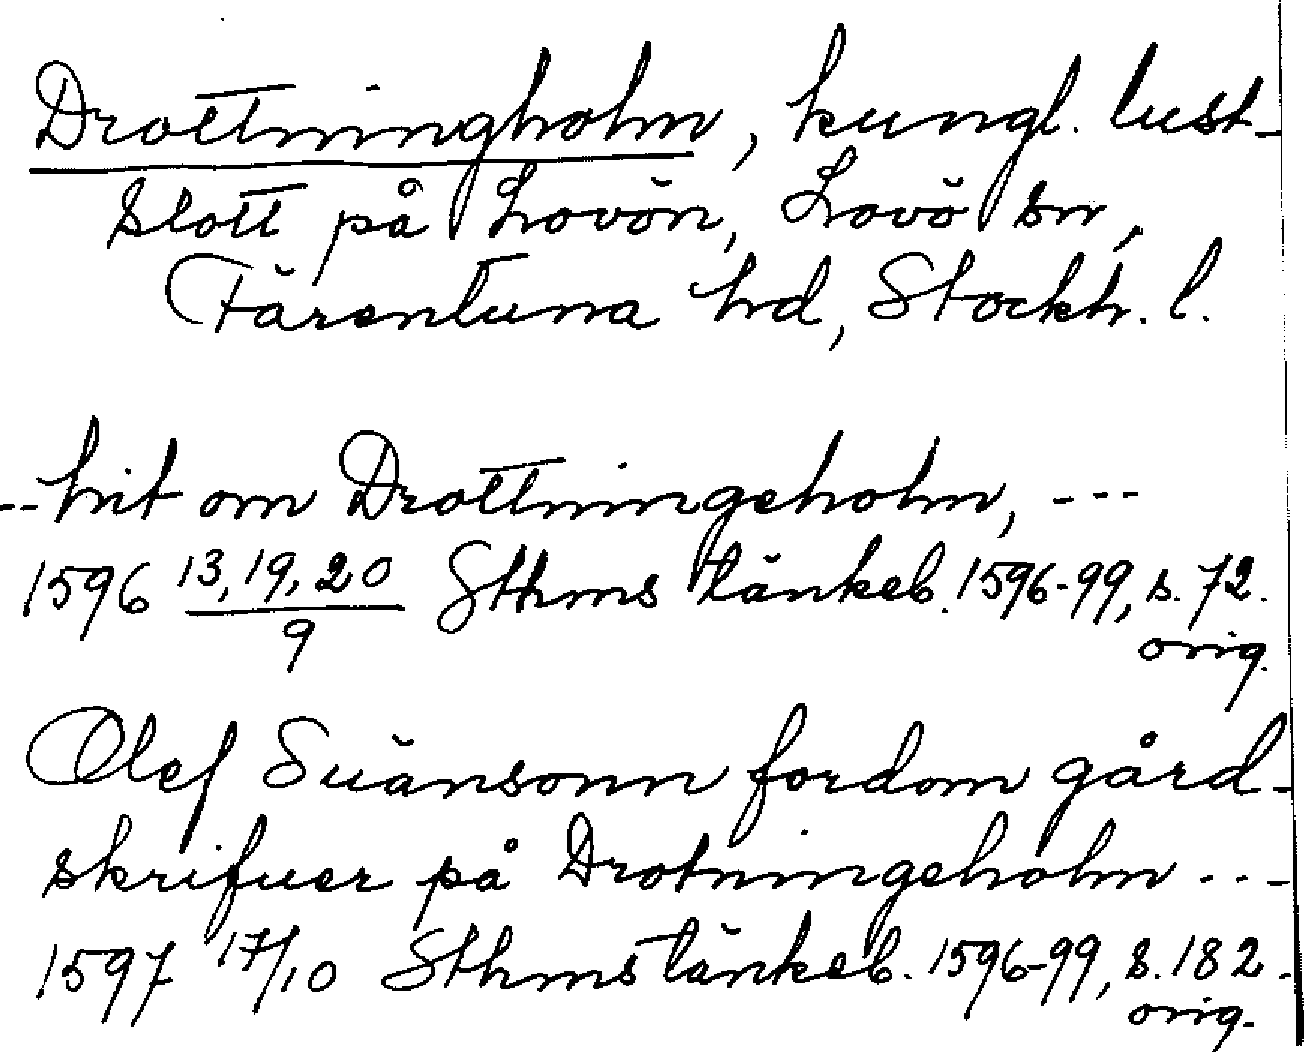 Drottningholm, kungl. lust-
slott på Lovön, Lovö sn,
Färentuna hd, Stockh. l.
--hit om Drottningeholm, ---
1596 13, 19, 20/9 Sthms tänkeb. 1596-99, s. 72.
orig.
Olef Suänsonn fordom gård-
skrifuer på Drotningeholm ---
1597 17/10 Sthms tänkeb. 1596-99, s. 182.
orig.